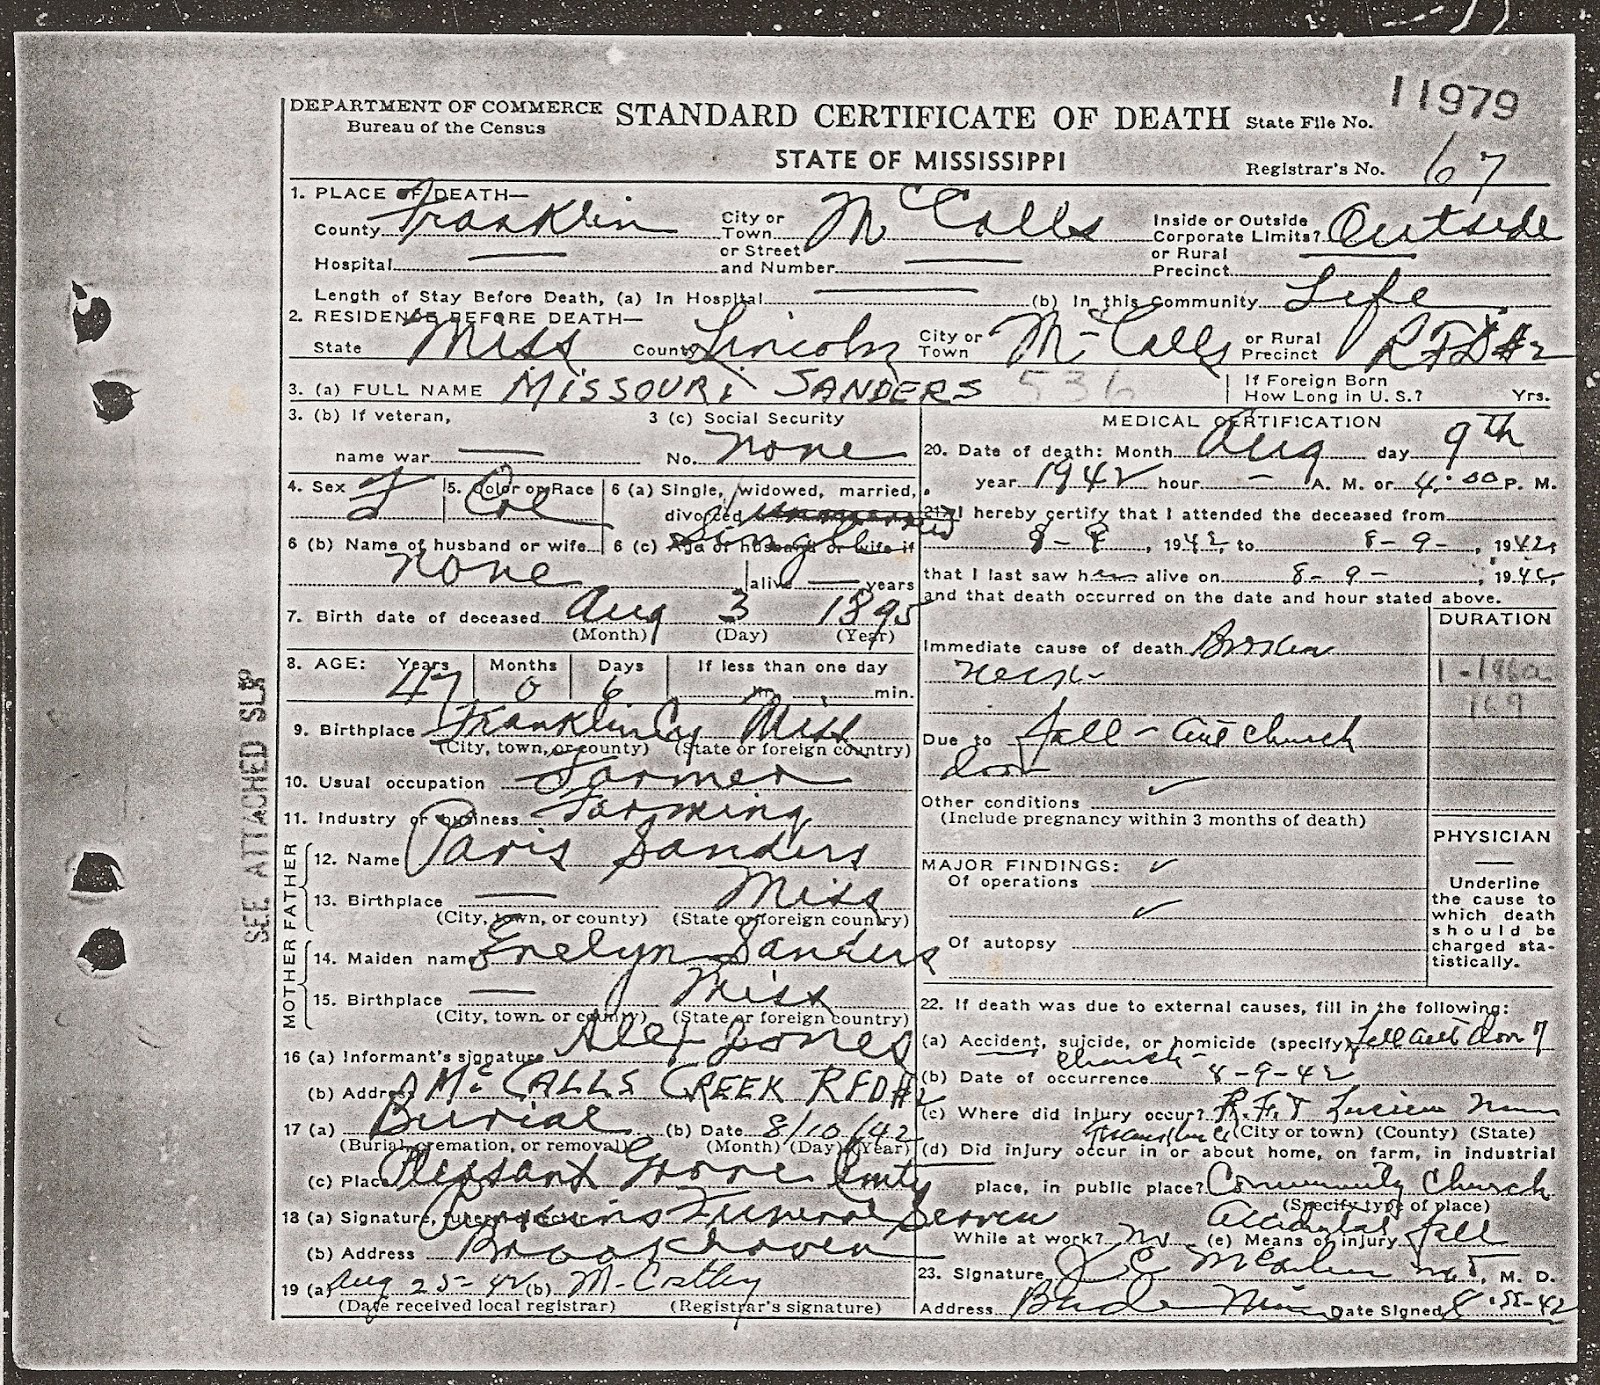 11979
DEPARTMENT OF COMMERCE STANDARD CERTIFICATE OF DEATH State File No.
Bureau of the Census
STATE OF MISSISSIPPI Registrar's No. 67
1. PLACE OF DEATH—
County Franklin City or Town McCalls Inside or Outside Corporate Limits? Outside
Hospital — or Street and Number — or Rural Precinct
Length of Stay Before Death, (a) In Hospital — (b) In this Community Life
2. RESIDENCE BEFORE DEATH—
State Miss County Lincoln City or Town McCalls or Rural Precinct RFD #2
3. (a) FULL NAME MISSOURI SANDERS 536 If Foreign Born How Long in U. S.? Yrs.
3. (b) If veteran, name war — 3 (c) Social Security No. None
4. Sex F 5. Color or Race Col 6 (a) Single, widowed, married, divorced Single
6 (b) Name of husband or wife None 6 (c) Age of husband or wife if alive — years
7. Birth date of deceased Aug 3 1895
(Month) (Day) (Year)
8. AGE: Years Months Days If less than one day
47 0 6 min.
9. Birthplace Franklin Co Miss
(City, town, or county) (State or foreign country)
10. Usual occupation Farmer
11. Industry or business Farming
FATHER
12. Name Paris Sanders
13. Birthplace — Miss
(City, town, or county) (State or foreign country)
MOTHER
14. Maiden name Evelyn Sanders
15. Birthplace — Miss
(City, town, or county) (State or foreign country)
16 (a) Informant's signature Alex Jones
(b) Address McCALLS CREEK RFD #2
17 (a) Burial (b) Date 8/10/42
(Burial, cremation, or removal) (Month) (Day) (Year)
(c) Place Pleasant Grove
18 (a) Signature, funeral director Funeral
(b) Address Brookhaven
19 (a) Aug 25-42 (b) M.
(Date received local registrar) (Registrar's signature)
MEDICAL CERTIFICATION
20. Date of death: Month Aug day 9th
year 1942 hour — A. M. or 4:00 P. M.
21. I hereby certify that I attended the deceased from
8-8-, 1942, to 8-9-, 1942,
that I last saw her alive on 8-9-, 1942,
and that death occurred on the date and hour stated above.
DURATION
Immediate cause of death Broken
neck-
169
Due to fall - out church
door
Other conditions
(Include pregnancy within 3 months of death)
MAJOR FINDINGS:
Of operations
Of autopsy
PHYSICIAN
—
Underline
the cause to
which death
should be
charged sta-
tistically.
22. If death was due to external causes, fill in the following:
(a) Accident, suicide, or homicide (specify) fell out door of
church-
(b) Date of occurrence 8-9-42
(c) Where did injury occur? Lucien Miss
(City or town) (County) (State)
(d) Did injury occur in or about home, on farm, in industrial
place, in public place? Community Church
(Specify type of place)
Accidental
While at work? No (e) Means of injury fall
23. Signature M. D.
Address Bude Miss Date Signed
SEE ATTACHED SLIP